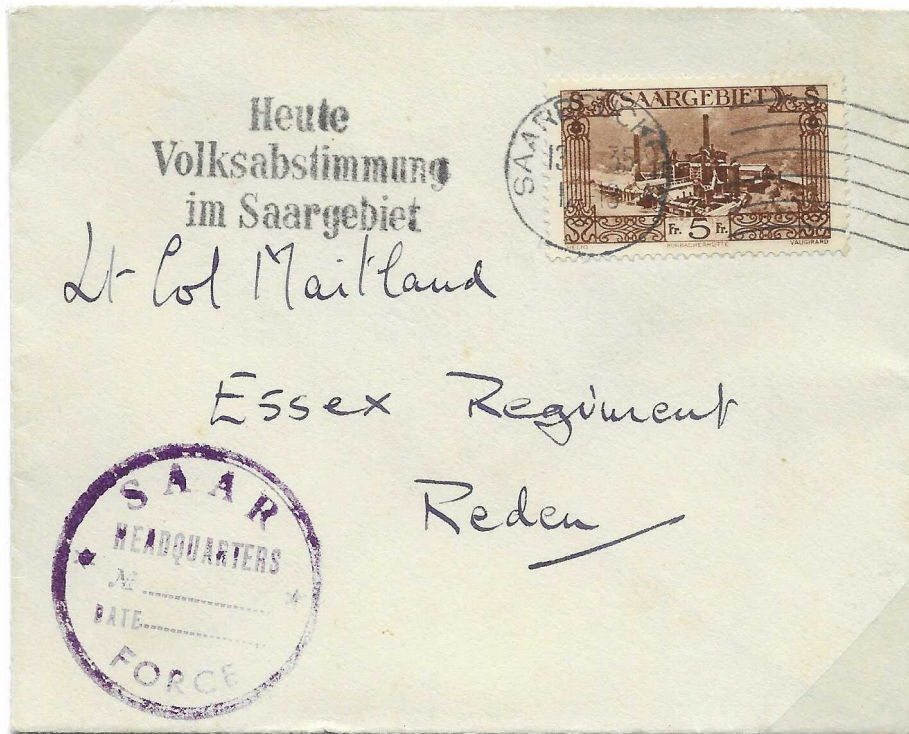 Heute
Volksabstimmung
im Saargebiet
S (SAARGEBIET) S
Fr. 5 Fr.
BURBACHERHÜTTE
VAUGIRARD
Lt Col Maitland
Essex Regiment
Reden
SAAR
HEADQUARTERS
No
DATE
FORCE